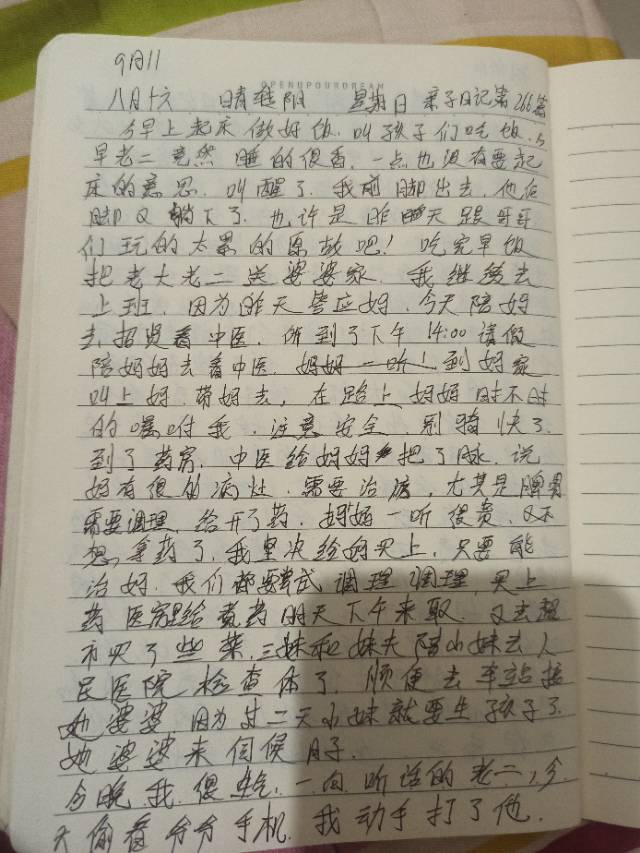 9月11
OPENUPOURDREAM
八月十六 晴转阴 星期日 亲子日记第266篇
今早上起床做好饭.叫孩子们吃饭.今
早老二竟然睡的很香.一点也没有要起
床的意思.叫醒了.我前脚出去.他后
脚又躺下了.也许是昨天跟哥哥
们玩的太累的原故吧!吃完早饭
把老大老二送婆婆家.我继续去
上班.因为昨天答应妈.今天陪妈
去招贤看中医.听到了下午14:00请假
陪妈妈去看中医.妈妈一听!到妈家
叫上妈.带妈去,在路上妈妈时不时
的嘱咐我.注意安全.别骑快了.
到了药房.中医给妈妈把了脉.说
妈有很的病灶.需要治疗,尤其是脾胃
需要调理.给开了药.妈妈一听很贵.又不
想拿药了.我坚决给妈买上.只要能
治好.我们都要尝试调理调理.买上
药医家里给煮药明天下午来取.又去超
市买了些菜.三妹和妹夫陪小妹去人
民医院检查体了.顺便去车站接
她婆婆因为过二天小妹就要生孩子了.
她婆婆来伺候月子.
今晚我很生气.一向听话的老二,今
天偷看爷爷手机.我动手打了他.